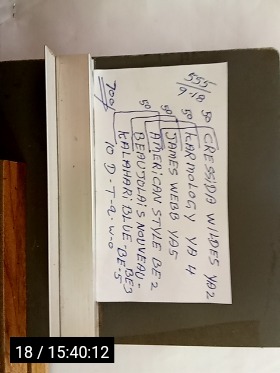 555
9.18
50 CRESSIDA WILDES YA2
50 CARDIOLOGY YA 4
50 JAMES WEBB YAS
50 AMERICAN STYLE BE2
BEAUJOLAIS NOUVEAU - BE3
KALAHARI BLUE - BE-5
TO D-T-Q-W-O
700
18 / 15:40:12